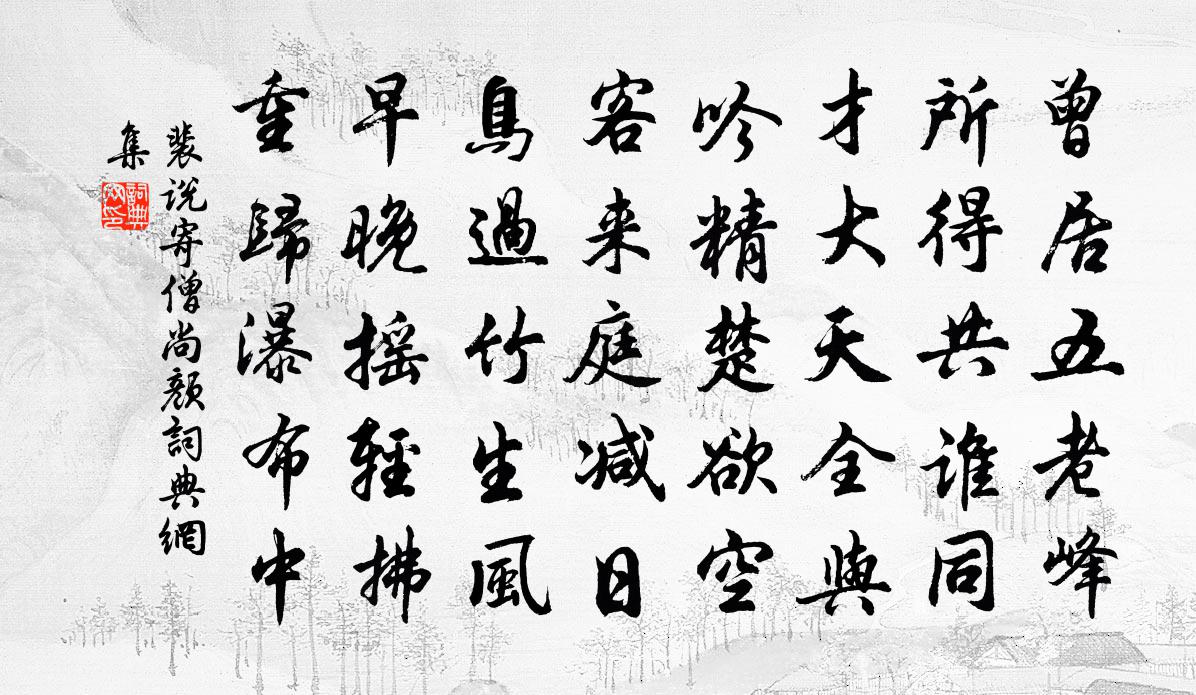 曾居五老峰
所得共誰同
才大天全與
吟精楚欲空
客来庭減日
鳥過竹生風
早晚摇輕拂
重歸瀑布中
裴説寄僧尚顏詞典網
集
詞典
网印